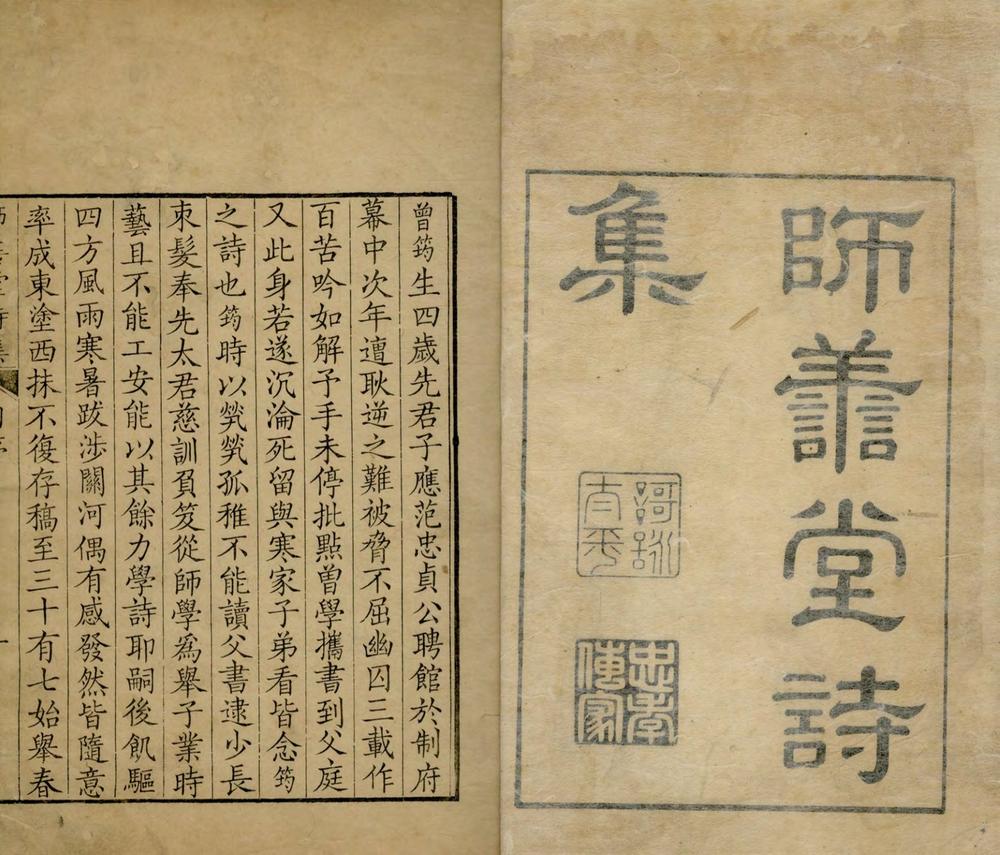 師善堂詩
集
謌詠
太平
忠孝
傳家
曾筠生四歲先君子應范忠貞公聘館於制府
幕中次年遭耿逆之難被脅不屈幽囚三載作
百苦吟如解予手未停批點曾學攜書到父庭
又此身若遂沉淪死留與寒家子弟看皆念筠
之詩也筠時以煢煢孤稚不能讀父書逮少長
朿髮奉先太君慈訓負笈從師學爲舉子業時
藝且不能工安能以其餘力學詩耶嗣後飢驅
四方風雨寒暑跋涉關河偶有感發然皆隨意
率成東塗西抹不復存稿至三十有七始舉春